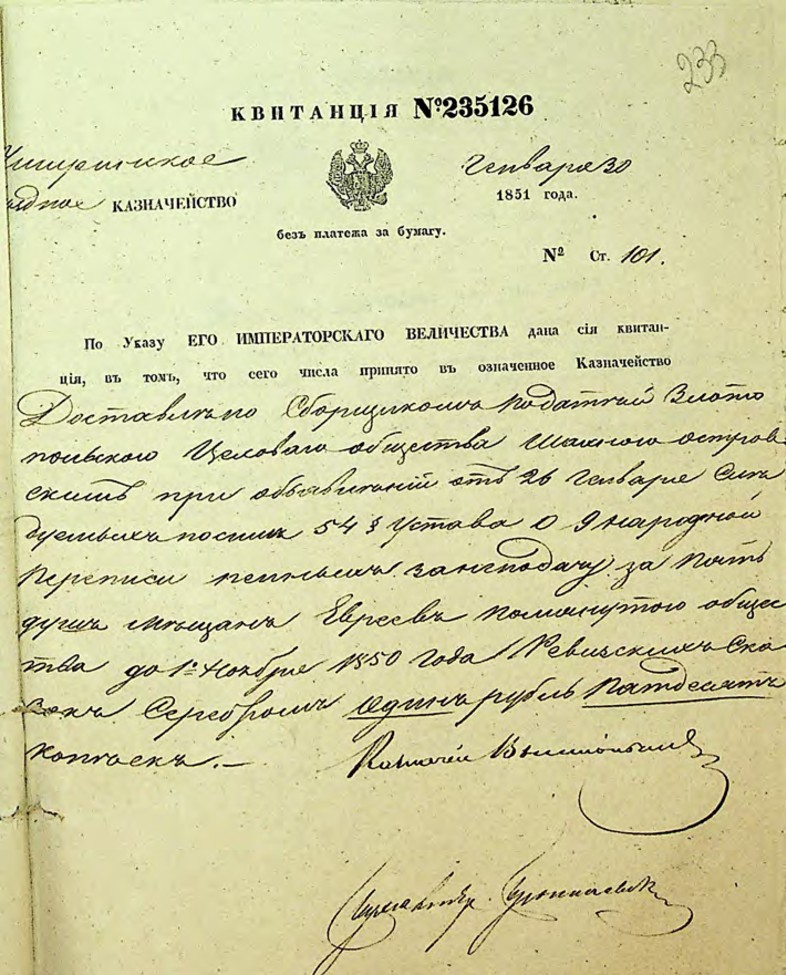 233
КВИТАНЦІЯ №235126
Чигиринское
Генваря 30
КАЗНАЧЕЙСТВО
1851 года.
безъ платежа за бумагу.
№ Ст. 101.
По Указу ЕГО ИМПЕРАТОРСКАГО ВЕЛИЧЕСТВА дана сія квитан-
ція, въ томъ, что сего числа принято въ означенное Казначейство
Доставлено Сборщикомъ податей Злото
польского общества островскимъ
скимъ при объявленіи отъ 26 Генваря Слѣ
дуемыхъ по силѣ 54 § Устава о 9 народной
Переписи пенныхъ за неподачу за пять
душъ мѣщанъ Евреевъ помянутого общес
тва до 1го Ноября 1850 года Ревизскихъ Ска
зокъ Серебромъ Одинъ рубль Пятдесятъ
копѣекъ.—
Казначей